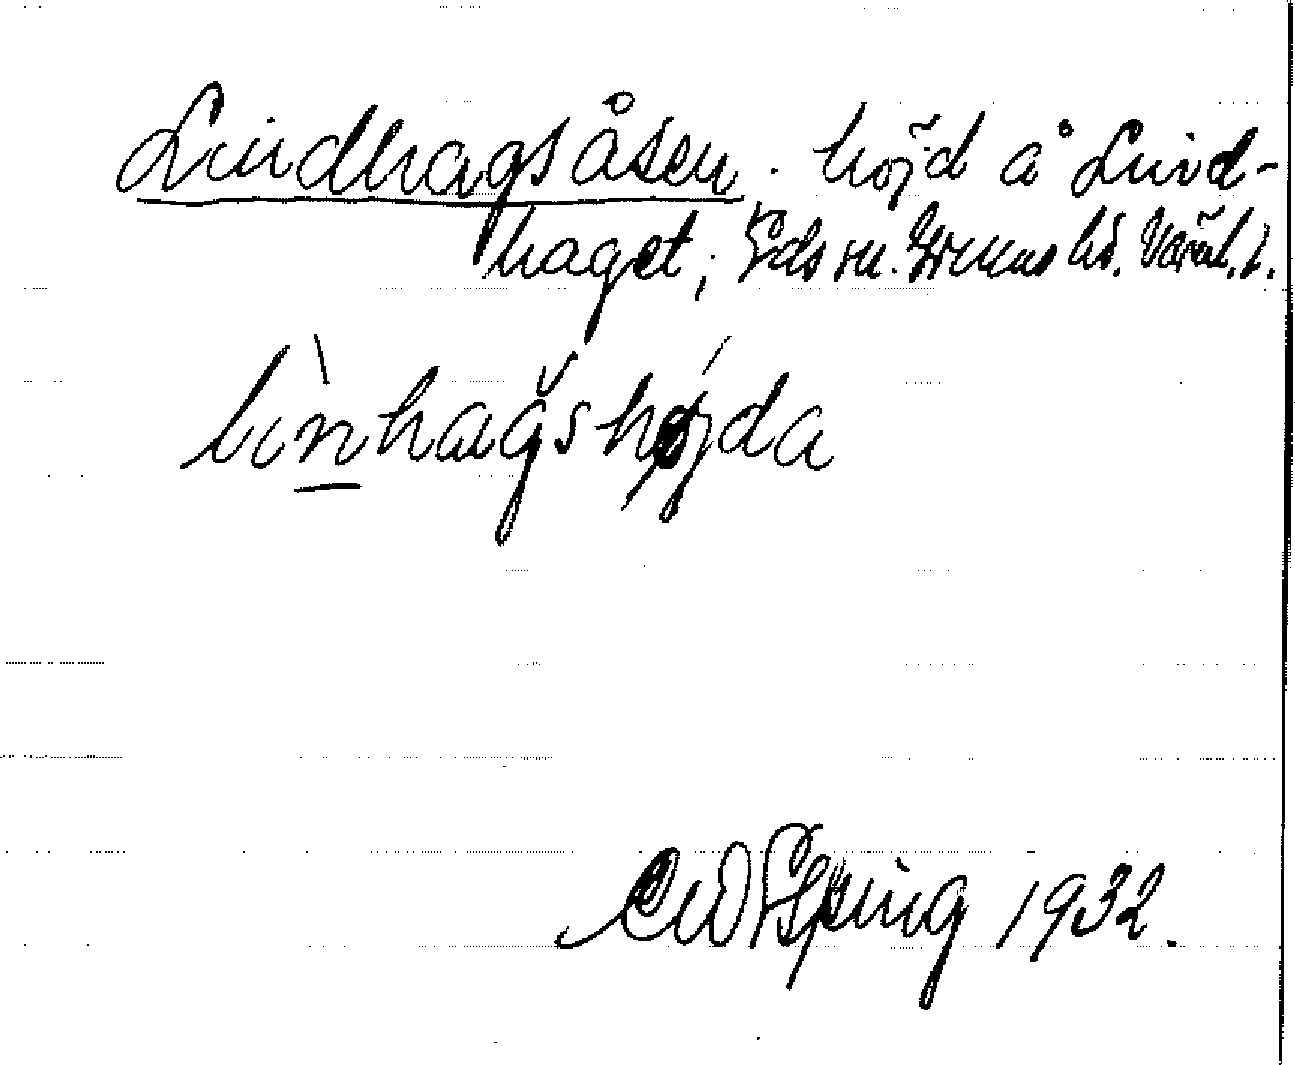 Lindhagsåsen. höjd å Lind-
haget; Eds sn. Grums hd. Värml. l.
lìnhagshǿjda
1932.